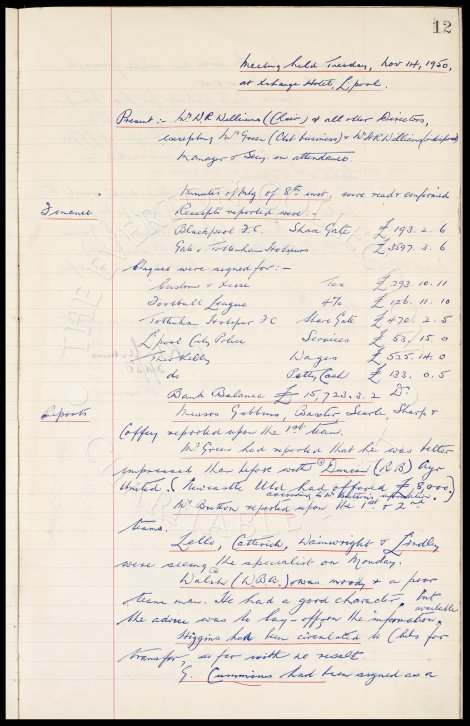 12
Meeting held Tuesday, Nov 14, 1950,
at Exchange Hotel, L'pool.
Present :- Mr W R Williams (Chair) & all other Directors,
excepting Mr Green (Club business) &
Manager & Secy in attendance
Minutes of Mtg of 8th inst. were read & confirmed
Finance Receipts reported were :-
Blackpool F.C. Share Gate £ 193. 2. 6
Gate v Tottenham Hotspurs £ 3597. 3. 6
Cheques were signed for :-
Customs & Excise Tax £ 293. 10. 11
Football League 4% £ 126. 11. 10
Tottenham Hotspur F C Share Gate £ 470. 2. 5
L'pool City Police Services £ 53. 15. 0
Theo Kelly Wages £ 525. 14. 0
do Petty Cash £ 133. 0. 5
Bank Balance £ 15,723. 3. 2 Dr
Reports Messrs Gibbins, Baxter Searle Sharp &
Coffey reported upon the 1st team.
Mr Green had reported that he was better
impressed than before with Duncan (R.B) Ayr
United. (Newcastle Utd had offered £ 8000.)
according to Mr Britton's information.
Mr Britton reported upon the 1st & 2nd
teams.
Lello, Catterick, Wainwright & Lindley
were seeing the specialist on Monday.
Walsh (W.B.A.) was moody & a poor
team man. He had a good character, but
the advice was to lay-off, on the information available
Higgins had been circulated to Clubs for
transfer, so far with no result.
G. Cummins had been signed as a
THE EVERTON COLLECTION
CHARITABLE